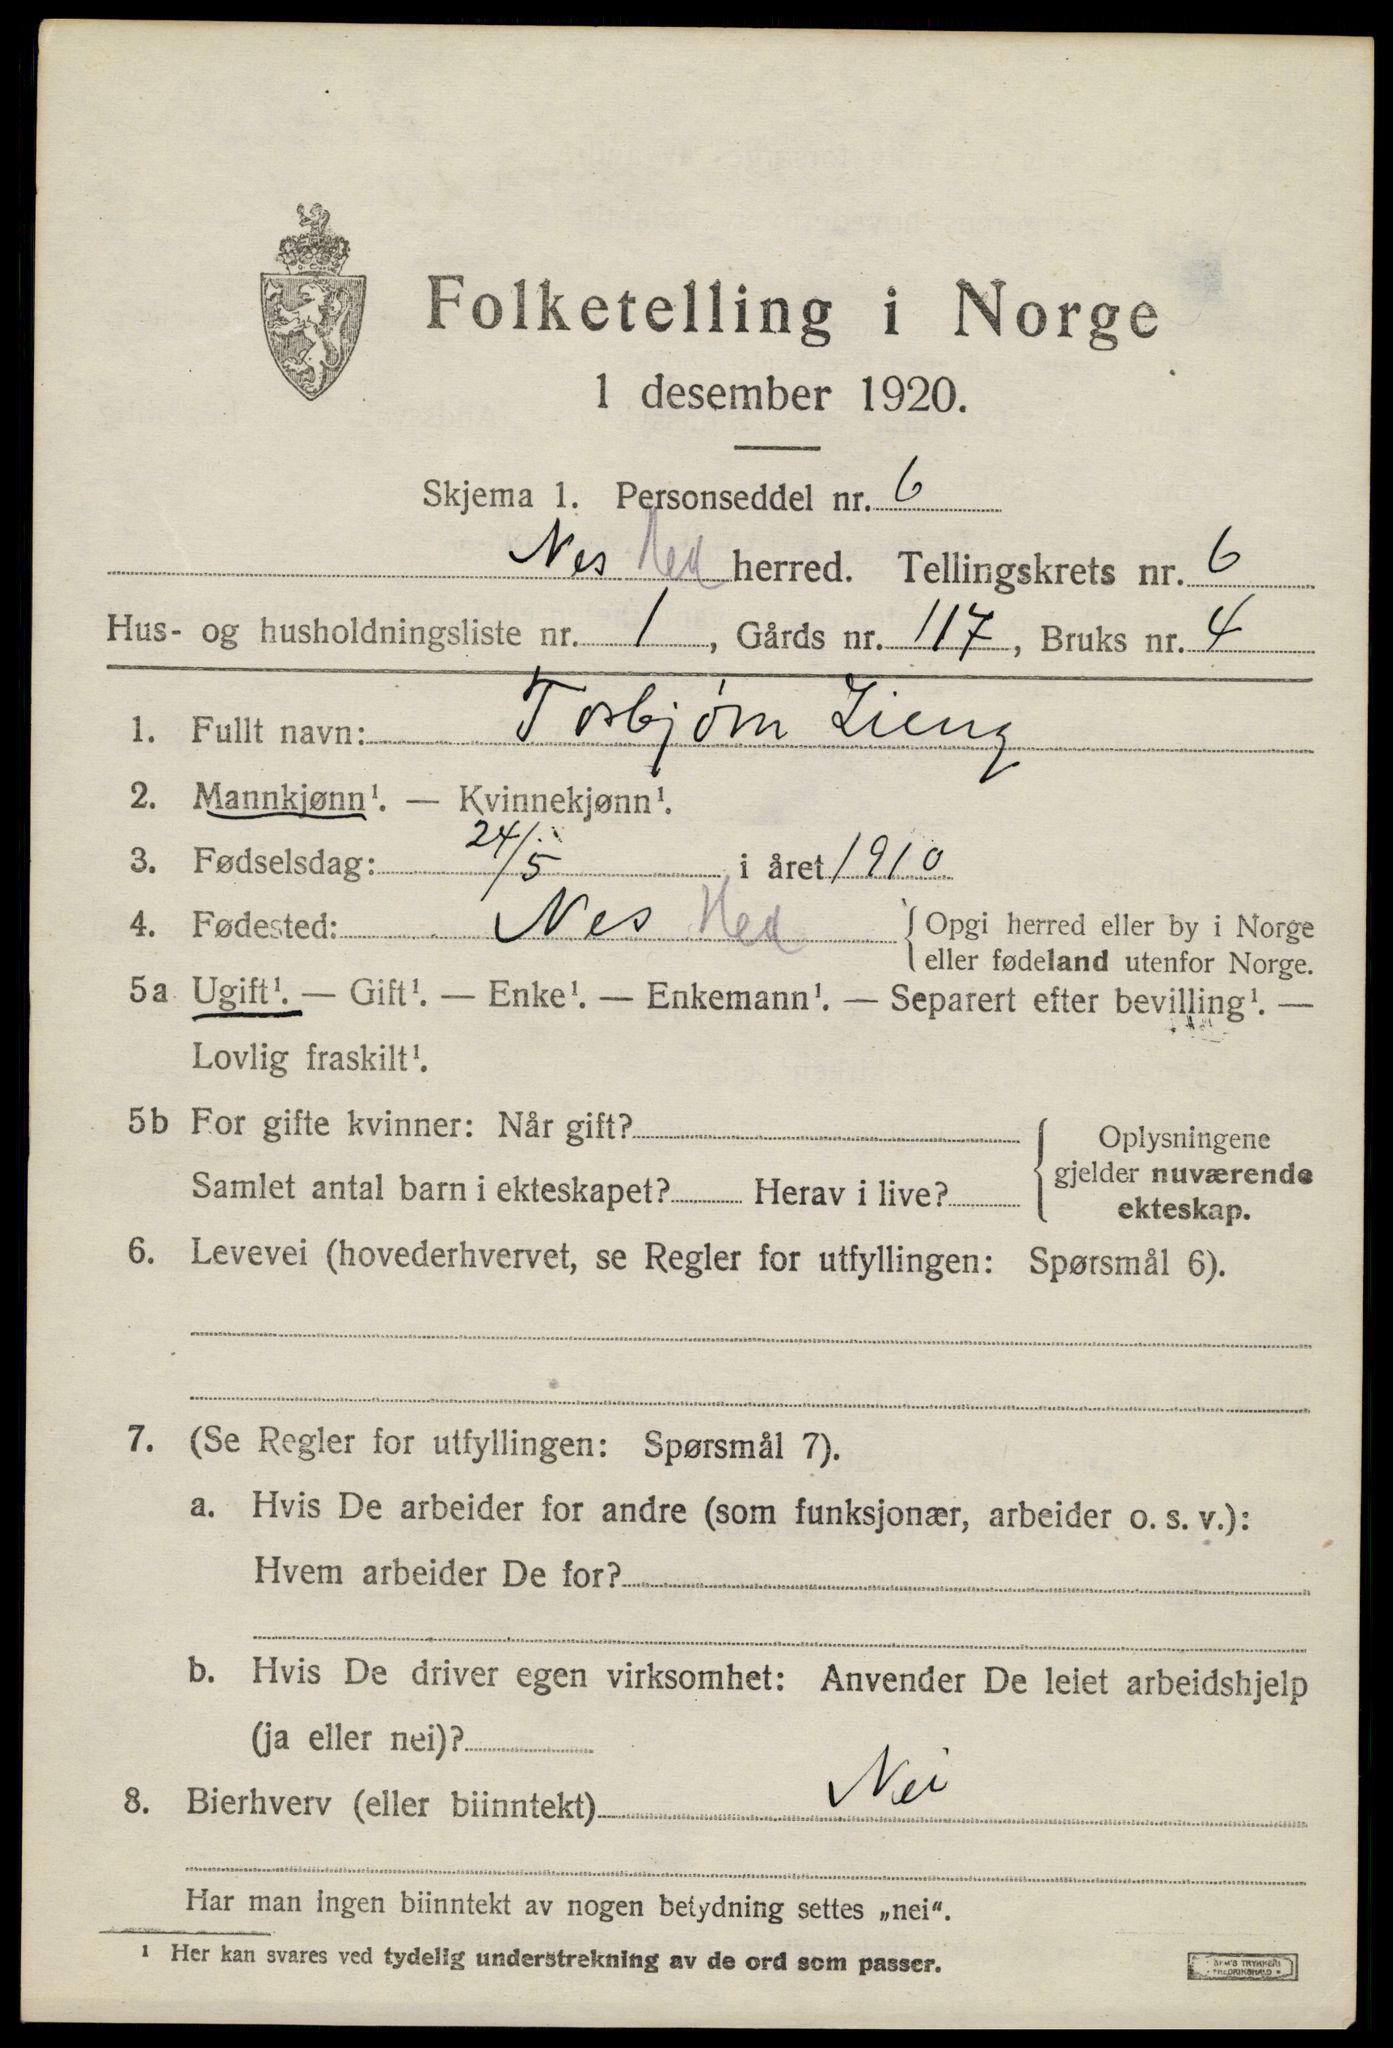 Folketelling i Norge
1 desember 1920.
Skjema 1. Personseddel nr. 6
Nes Hed herred. Tellingskrets nr. 6
Hus- og husholdningsliste nr. 1, Gårds nr. 117, Bruks nr. 4
1. Fullt navn: Torbjørn Lieng
2. Mannkjønn¹. — Kvinnekjønn¹.
3. Fødselsdag: 24/5 i året 1910
4. Fødested: Nes Hed { Opgi herred eller by i Norge
eller fødeland utenfor Norge.
5a Ugift¹. — Gift¹. — Enke¹. — Enkemann¹. — Separert efter bevilling¹. —
Lovlig fraskilt¹.
5b For gifte kvinner: Når gift? { Oplysningene
gjelder nuværende
Samlet antal barn i ekteskapet? Herav i live? ekteskap.
6. Levevei (hovederhvervet, se Regler for utfyllingen: Spørsmål 6).
7. (Se Regler for utfyllingen: Spørsmål 7).
a. Hvis De arbeider for andre (som funksjonær, arbeider o. s. v.):
Hvem arbeider De for?
b. Hvis De driver egen virksomhet: Anvender De leiet arbeidshjelp
(ja eller nei)?
8. Bierhverv (eller biinntekt) Nei
Har man ingen biinntekt av nogen betydning settes „nei".
¹ Her kan svares ved tydelig understrekning av de ord som passer.
TRYKKERI